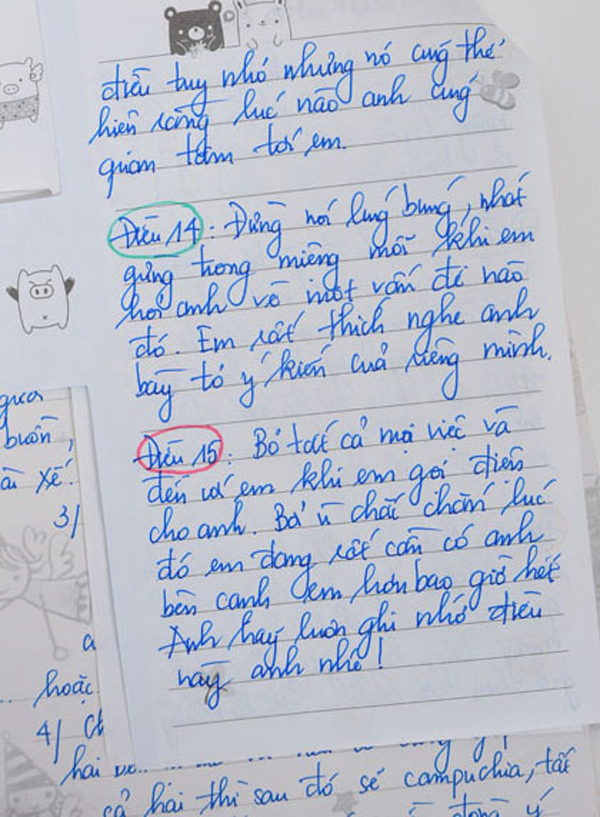 điều tuy nhỏ nhưng nó cũng thể
hiện rằng lúc nào anh cũng
quan tâm tới em.
Điều 14: Đừng nói lúng búng, nhát
gừng trong miệng mỗi khi em
hỏi anh về một vấn đề nào
đó. Em rất thích nghe anh
bày tỏ ý kiến của riêng mình.
Điều 15: Bỏ tất cả mọi việc và
đến với em khi em gọi điện
cho anh. Bởi vì chắc chắn lúc
đó em đang rất cần có anh
bên cạnh em hơn bao giờ hết
Anh hãy luôn ghi nhớ điều
này anh nhé!
buồn,
3/
hoặc
4/
hai
cả hai thì sau đó sẽ campuchia, tất